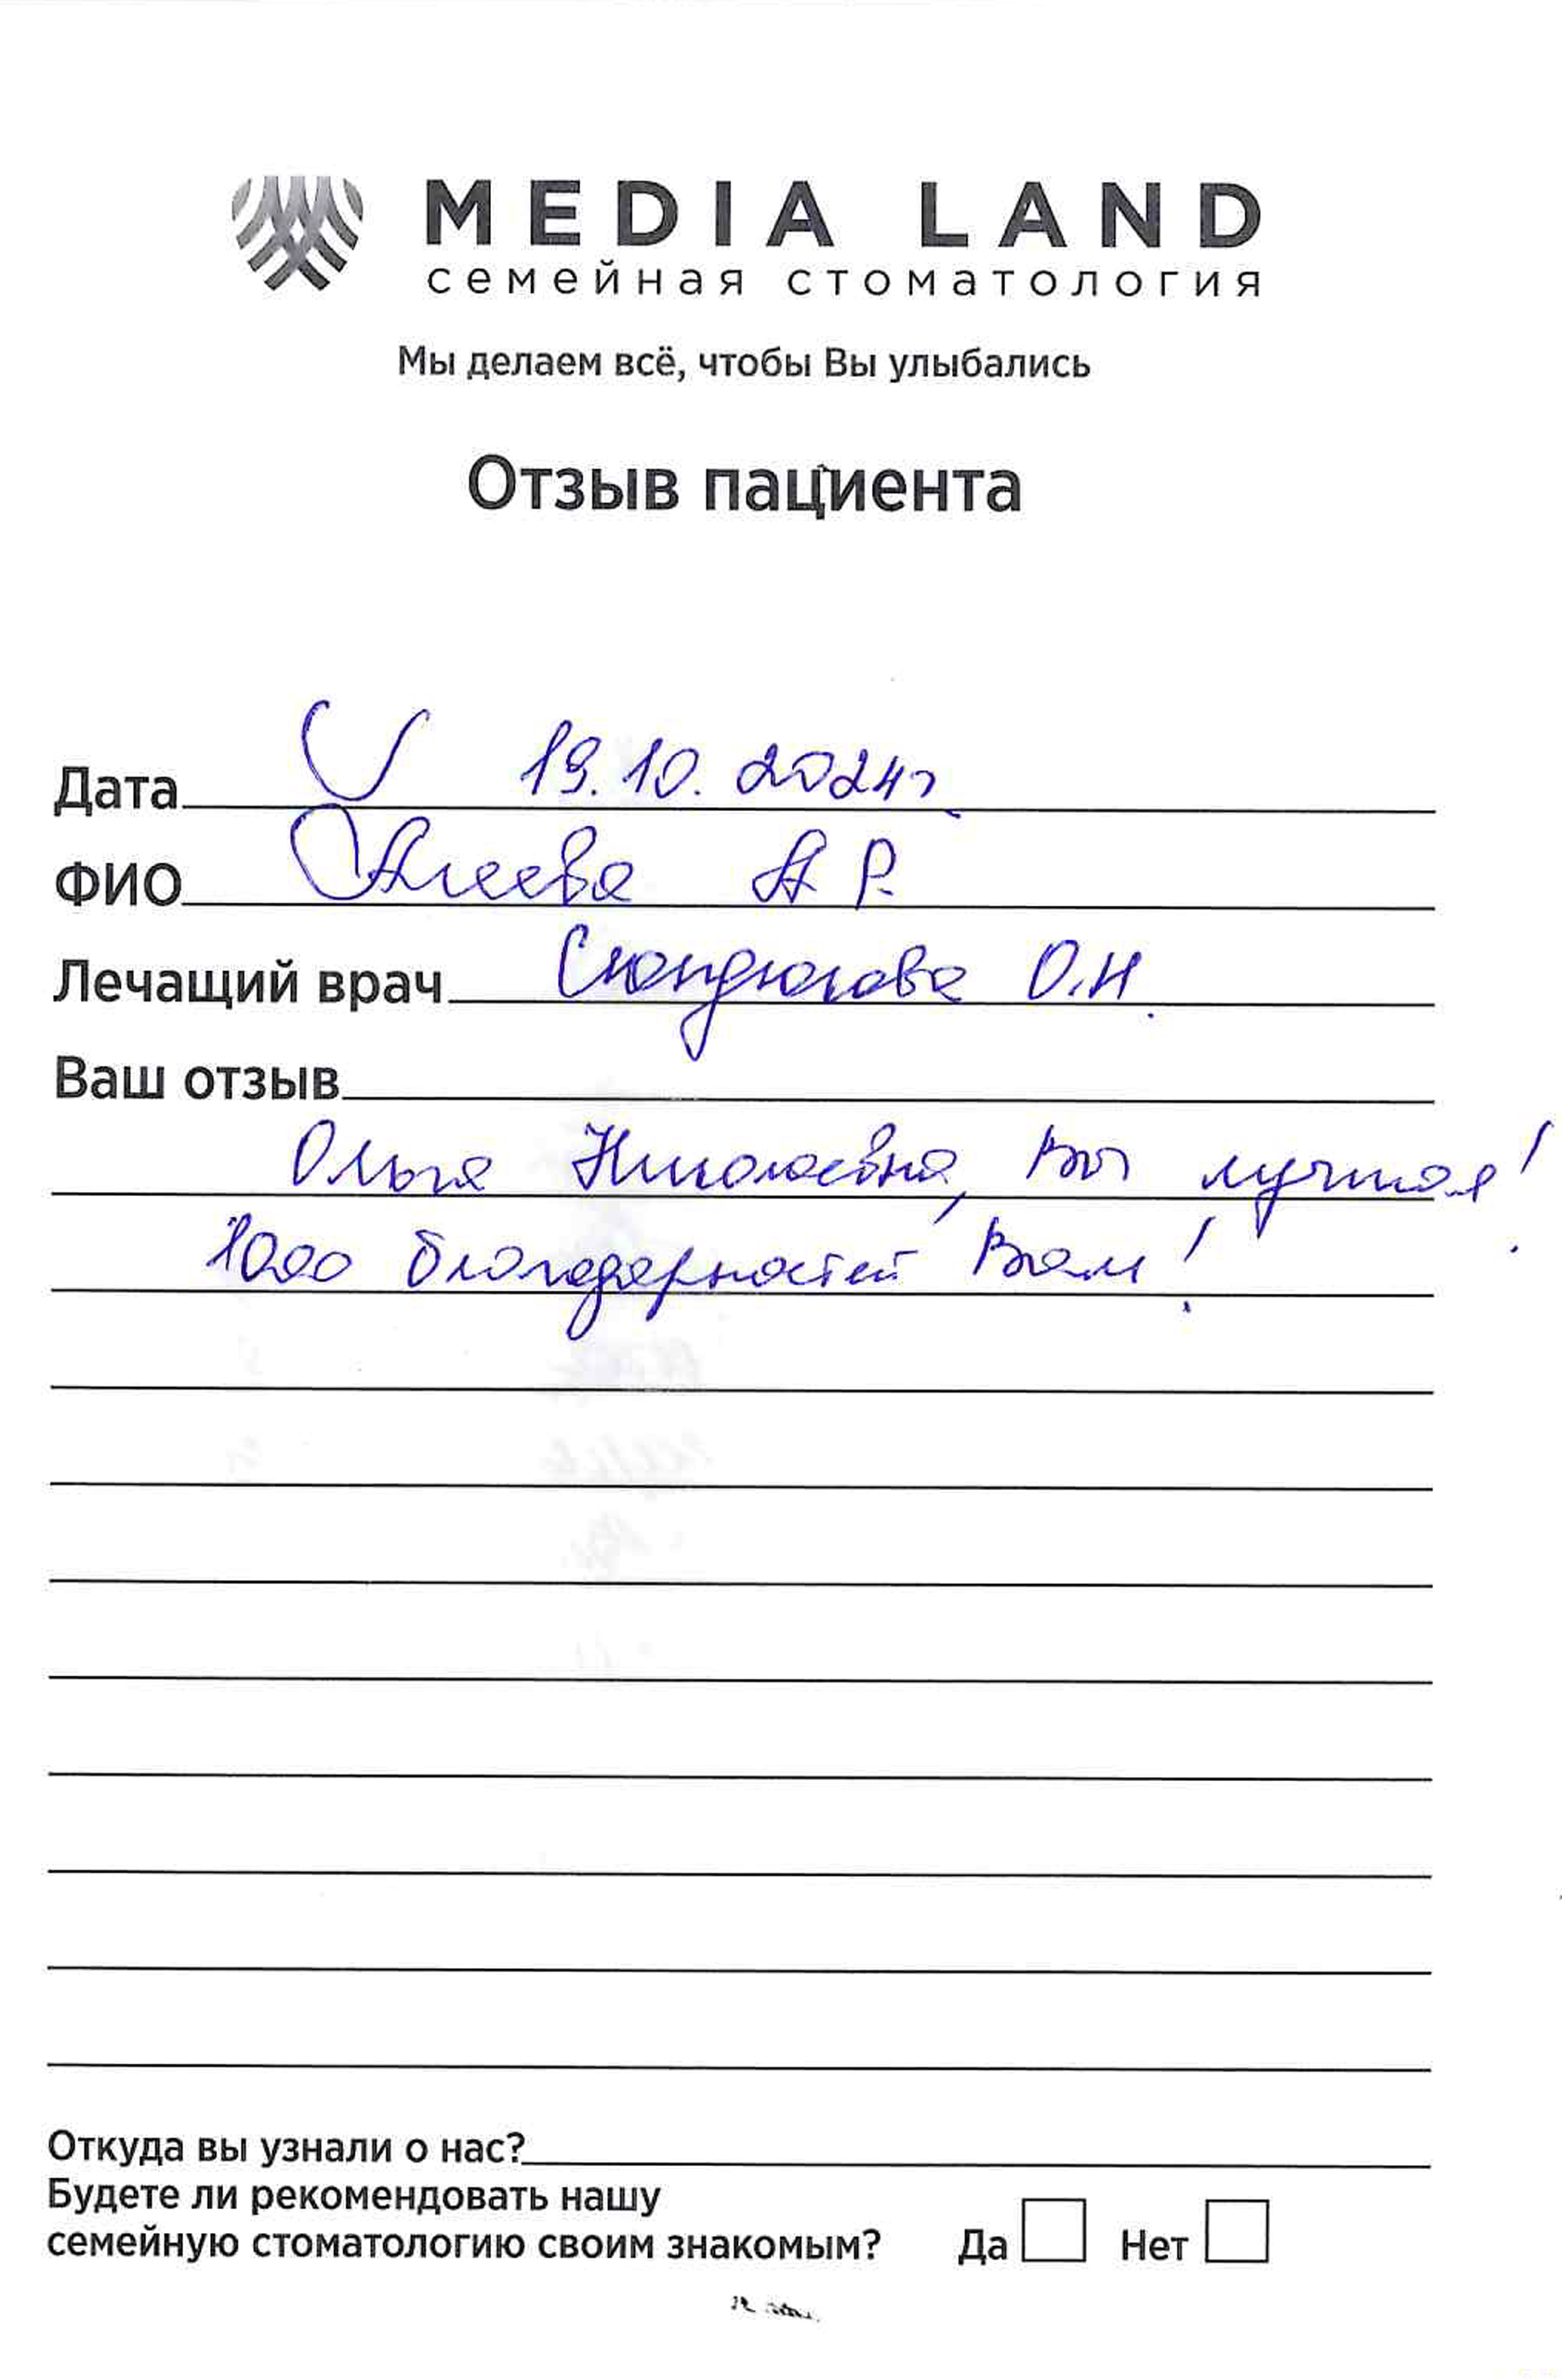 MEDIA LAND
семейная стоматология
Мы делаем всё, чтобы Вы улыбались
Отзыв пациента
Дата 19.10.2024г
ФИО А. Р.
Лечащий врач Сюндюкова О.Н.
Ваш отзыв
Ольга Николаевна, Вы лучшая!
1000 благодарностей Вам!
Откуда вы узнали о нас?
Будете ли рекомендовать нашу
семейную стоматологию своим знакомым? Да Нет